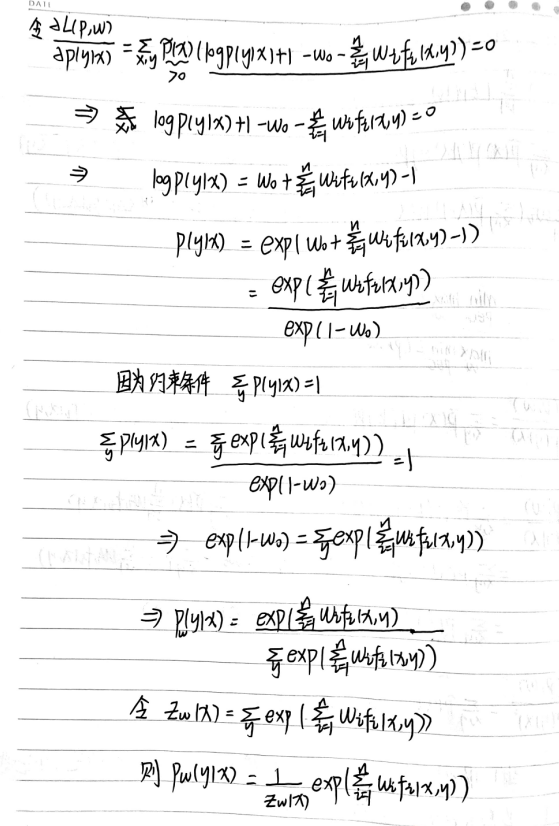 DATE
令 ∂L(P,w)/∂P(y|x) = Σ_{x,y} P̃(x)(log P(y|x)+1 -w₀ - Σ_{i=1}^n wᵢfᵢ(x,y)) = 0
>0
⇒ Σ_{x,y} log P(y|x)+1 -w₀ - Σ_{i=1}^n wᵢfᵢ(x,y) = 0
⇒ log P(y|x) = w₀ + Σ_{i=1}^n wᵢfᵢ(x,y) -1
P(y|x) = exp(w₀ + Σ_{i=1}^n wᵢfᵢ(x,y) -1)
= exp(Σ_{i=1}^n wᵢfᵢ(x,y)) / exp(1-w₀)
因为约束条件 Σ_y P(y|x)=1
Σ_y P(y|x) = Σ_y exp(Σ_{i=1}^n wᵢfᵢ(x,y)) / exp(1-w₀) = 1
⇒ exp(1-w₀) = Σ_y exp(Σ_{i=1}^n wᵢfᵢ(x,y))
⇒ P_w(y|x) = exp(Σ_{i=1}^n wᵢfᵢ(x,y) / Σ_y exp(Σ_{i=1}^n wᵢfᵢ(x,y))
令 Z_w(x) = Σ_y exp(Σ_{i=1}^n wᵢfᵢ(x,y))
则 P_w(y|x) = 1/Z_w(x) exp(Σ_{i=1}^n wᵢfᵢ(x,y))